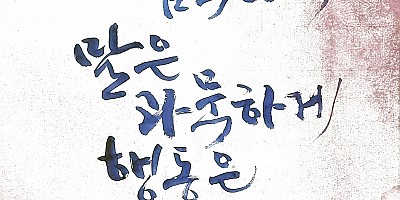 말은
과묵하게
행동은